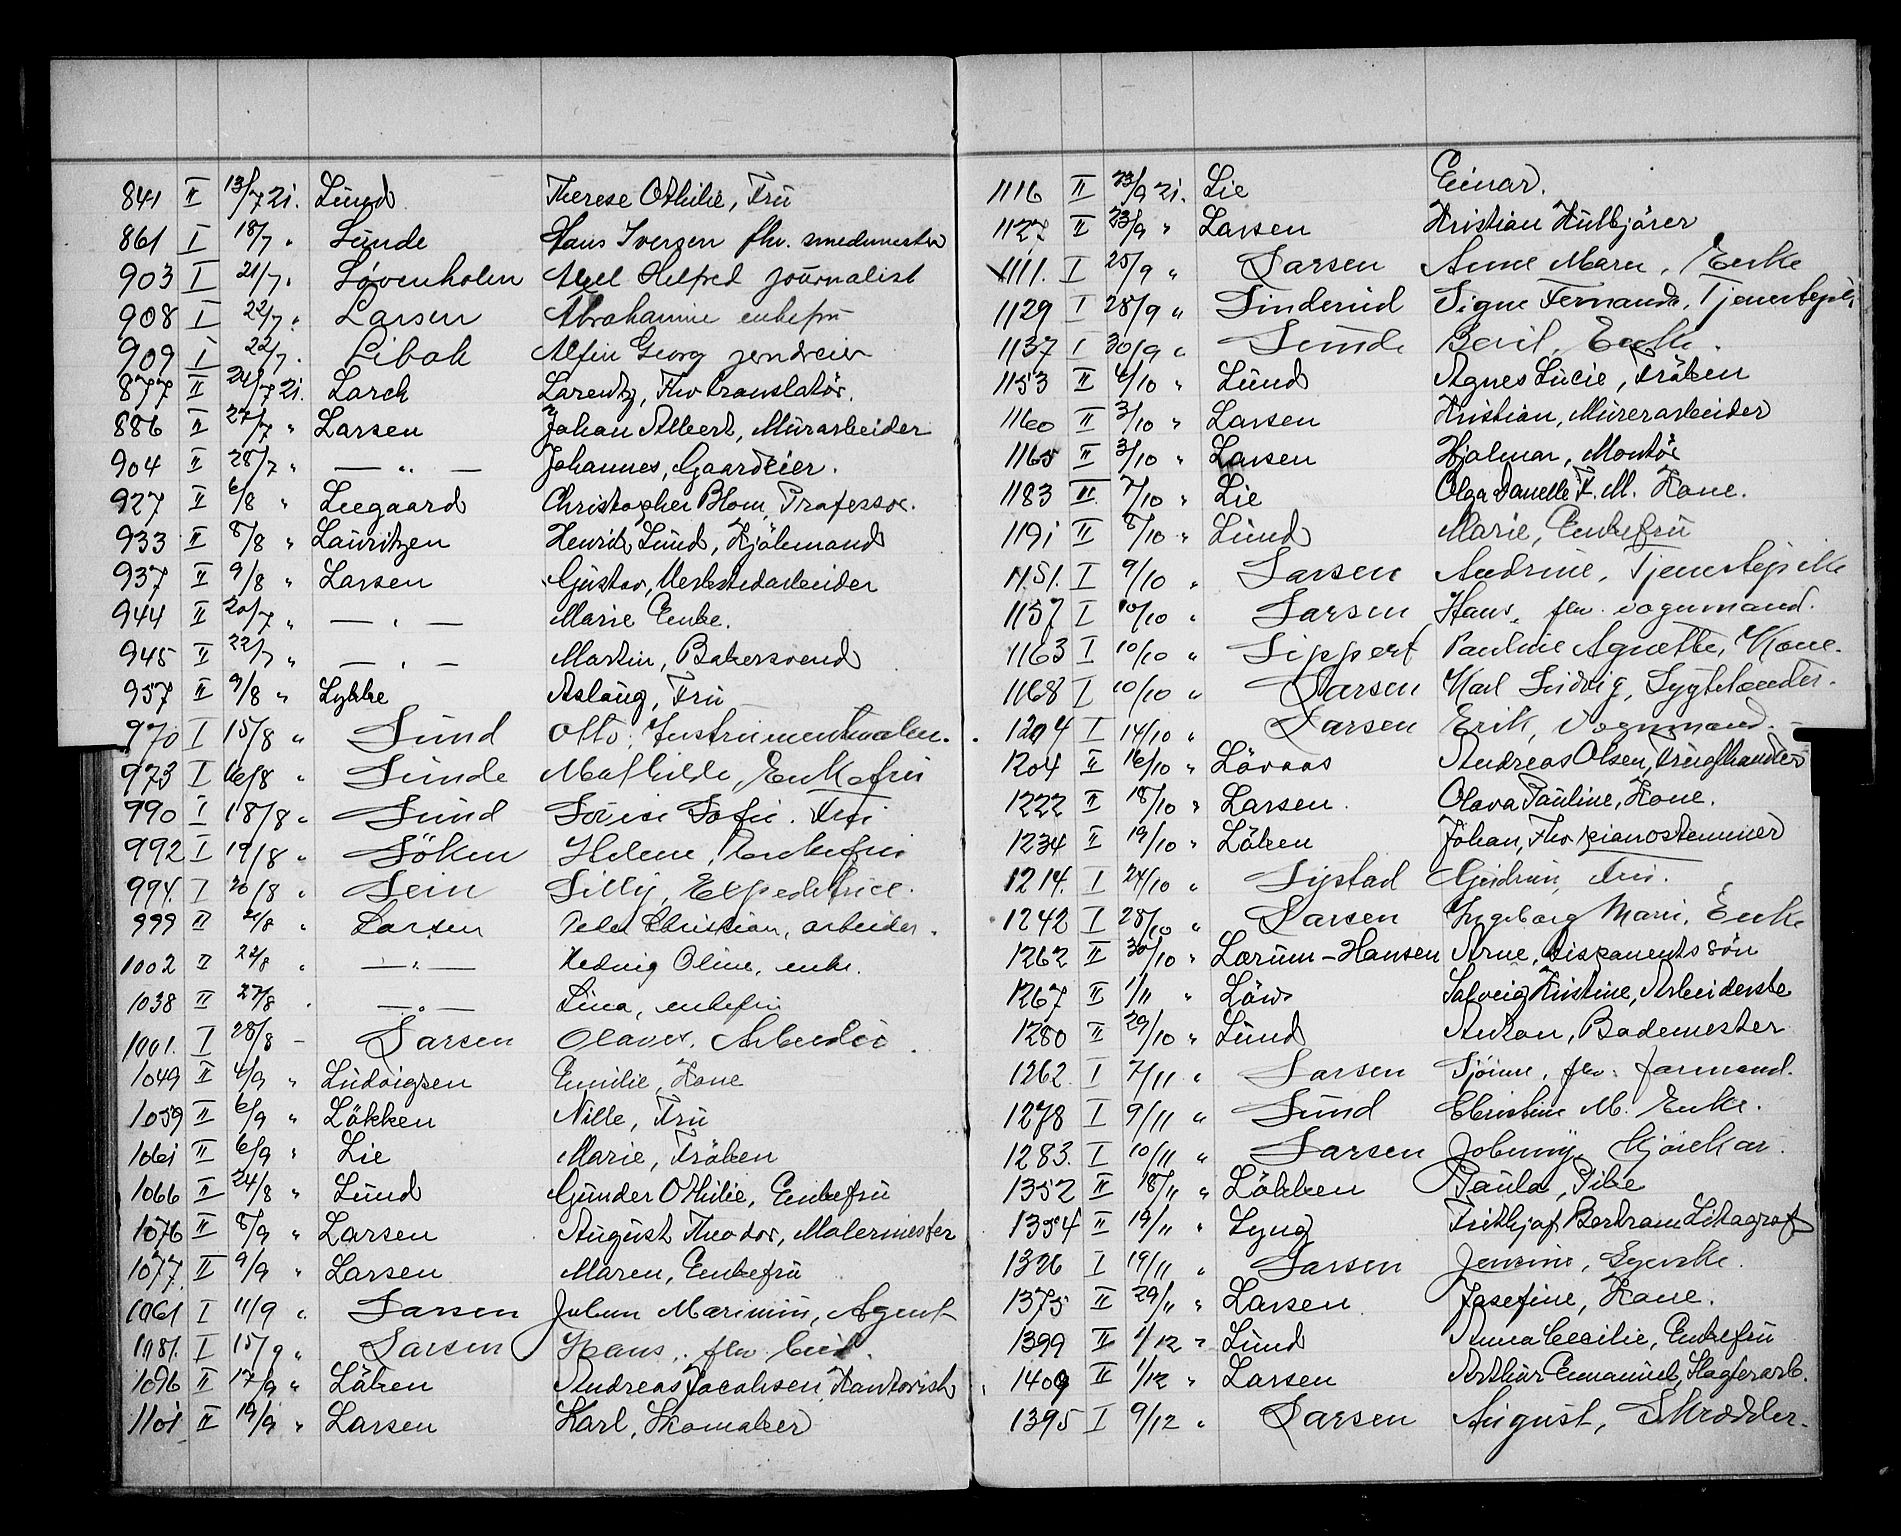 841 II 13/7 21. Lund Therese Othilie, Fru
861 I 18/7 " Lunde Hans Iversen fhv. smedemester
903 I 21/7 " Løvenholm Axel Helfred journalist
908 I 22/7 " Larsen Abrahamine enkefru
909 I 22/7 " Libak Alfin Georg
877 II 24/7 21. Larck Larentz, Fhv translatör.
886 II 27/7 " Larsen Johan Albert, Murarbeider
904 II 28/7 " — " — Johannes, Gaardeier.
927 II 6/8 " Leegaard Christopher Blom, Professor.
933 II 8/8 " Lauritzen Henrik Lund, Kjöbmand
937 II 9/8 " Larsen Gustav, Verkstedarbeider
944 II 20/7 " — " — Marie Enke.
945 II 22/7 " — " — Martin, Bakersvend
957 II 9/8 " Lykke Aslaug, Fru
970 I 15/8 " Lund Otto, Instrumentmaker.
973 I 16/8 " Lunde Mathilde, Enkefru
990 I 18/8 " Lund Lovise Sofie. Fru
992 I 19/8 " Löken Helene, Enkefru
994. I 20/8 " Lein Lilly, Expeditrice.
999 II 21/8 " Larsen Peder Christian, arbeider.
1002 II 22/8 " — " — Hedvig Oline, enke.
1038 II 27/8 " — " — Lina, enkefru
1001. I 28/8 - Larsen Olaves. Arbeider.
1049 II 4/9 " Ludvigsen Emilie, Kone
1059 II 6/9 " Lökken Nille, Fru
1061 II 6/9 " Lie Marie, Fröken
1066 II 24/8 " Lund Gunder Othilie, Enkefru
1076 II 8/9 " Larsen August Theodor, Malermester
1077 II 9/9 " Larsen Maren, Enkefru
1061 I 11/9 " Larsen Johan Marinius, Agent
1081. I 15/9 " Larsen Hans, fhv.
1096 II 17/9 " Löken Andreas Jacobsen, Kontorist
1101 II 19/9 " Larsen Karl, Skomaker
1116 II 23/9 21. Lie Einar.
1127 II 23/9 " Larsen Kristian Hulbjörer
1111. I 25/9 " Larsen Anne Marn, Enke
1129 I 28/9 " Linderud Signe Fernanda, Tjenestepi
1137 I 30/9 " Lunde Beril, Enke.
1153 II 4/10 " Lund Agnes Lucie, Fröken
1160 II 3/10 " Larsen Kristian, Murerarbeider
1165 II 3/10 " Larsen Hjalmar, Montör
1183 II 7/10 " Lie Olga Danelle F. M. Kone.
1191 II 8/10 " Lund Marie, Enkefru
1151. I 9/10 " Larsen Andrine, Tjenestepike
1157 I 10/10 " Larsen Hans, fhv. vognmand.
1163 I 10/10 " Lippert Pauline Agnethe, Kone.
1168 I 10/10 " Larsen Karl Ludvig, Lygtetænder.
1204 I 14/10 " Larsen Erik, Vognmand.
1204 II 16/10 " Lövaas Andreas Olsen, Frugthandler
1222 II 18/10 " Larsen. Olava Pauline, Kone.
1234 II 19/10 " Löken Johan, Fhv. pianostemmer
1214. I 24/10 " Lystad Gudrun, Fru.
1242 I 28/10 " Larsen Ingeborg Marie, Enke
1262 II 30/10 " Lærum-Hansen Arne, Disponentssön
1267 II 1/11 " Löw Solveig Kristine, Arbeiderske
1280 II 29/10 " Lund Anton, Bademester
1262. I 7/11 " Larsen Sjönne, fhv. formand.
1278 I 9/11 " Lund Christine M. Enke.
1283. I 10/11 " Larsen Johnny, Kjörekar.
1352 II 18/11 " Lökken Paula, Pike
1354 II 19/11 " Lyng Frithjof Bertram Litograf
1326 I 19/11 " Larsen Jensine, Syerske.
1375 II 29/11 " Larsen Josefine, Kone.
1399 II 1/12 " Lund Anna Cecilie, Enkefru
1409 II 1/12 " Larsen Arthur Emanuel, Lagerarb.
1395 I 9/12 " Larsen August, Skrædder.